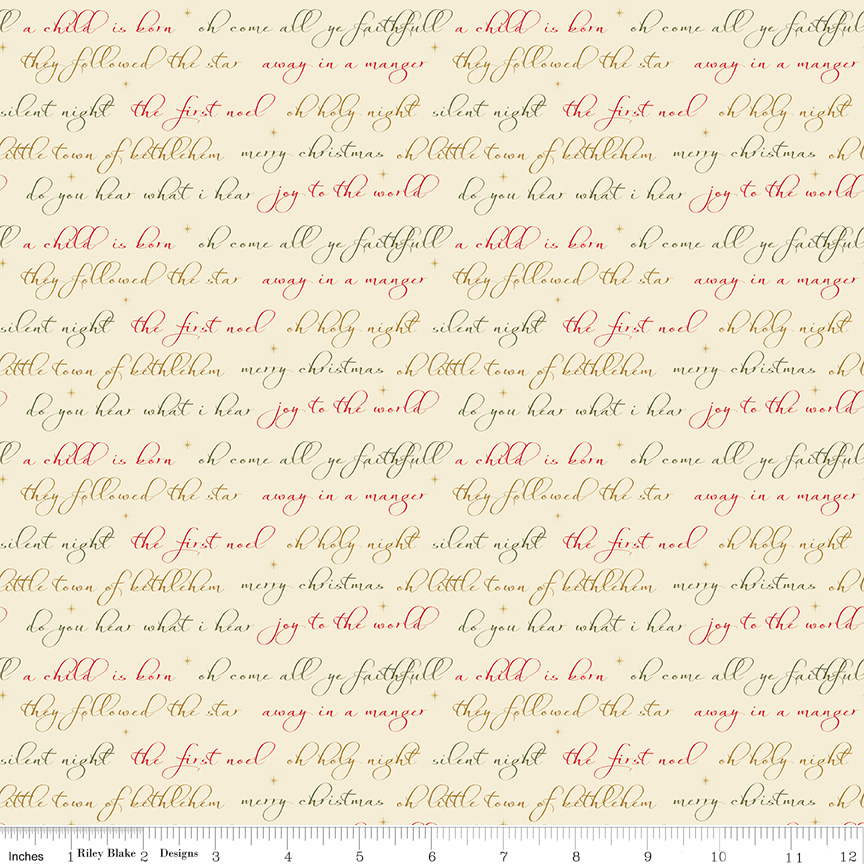 l a child is born oh come all ye faithfull a child is born oh come all ye faithfull
they followed the star away in a manger they followed the star away in a manger
silent night the first noel oh holy night silent night the first noel oh holy night
little town of bethlehem merry christmas oh little town of bethlehem merry christmas oh l
do you hear what i hear joy to the world do you hear what i hear joy to the world
l a child is born oh come all ye faithfull a child is born oh come all ye faithfull
they followed the star away in a manger they followed the star away in a manger
silent night the first noel oh holy night silent night the first noel oh holy night
little town of bethlehem merry christmas oh little town of bethlehem merry christmas oh l
do you hear what i hear joy to the world do you hear what i hear joy to the world
l a child is born oh come all ye faithfull a child is born oh come all ye faithfull
they followed the star away in a manger they followed the star away in a manger
silent night the first noel oh holy night silent night the first noel oh holy night
little town of bethlehem merry christmas oh little town of bethlehem merry christmas oh l
do you hear what i hear joy to the world do you hear what i hear joy to the world
l a child is born oh come all ye faithfull a child is born oh come all ye faithfull
they followed the star away in a manger they followed the star away in a manger
silent night the first noel oh holy night silent night the first noel oh holy night
little town of bethlehem merry christmas oh little town of bethlehem merry christmas oh l
Inches 1 Riley Blake 2 Designs 3 4 5 6 7 8 9 10 11 12